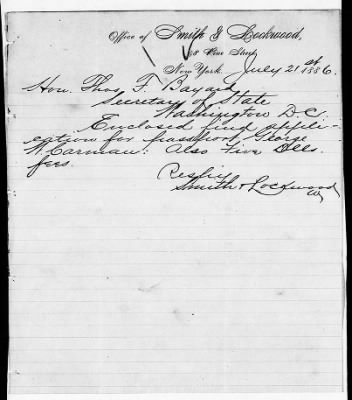 Office of Smith & Lockwood,
Pine Street
New York July 21st 1886.
Hon. Thos. F. Bayard
Secretary of State
Washington D.C.
Enclosed find appli-
cation for passport, George
W Carman: Also Five Dlls.
fees.
Resply
Smith & Lockwood